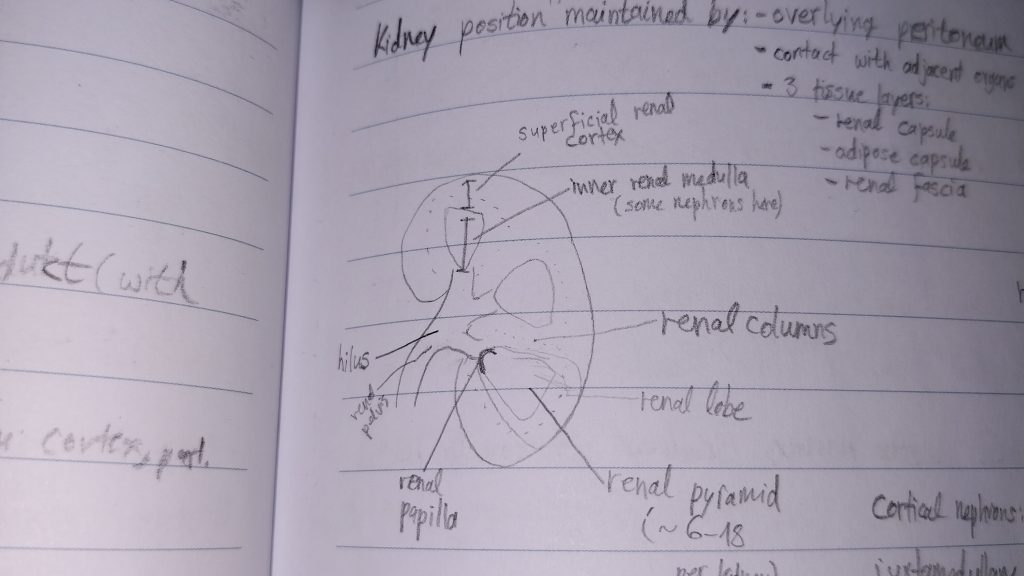 Kidney position maintained by: - overlying peritoneum
- contact with adjacent organs
- 3 tissue layers:
- renal capsule
- adipose capsule
- renal fascia
superficial renal
cortex
inner renal medulla
(some nephrons here)
(with
renal columns
hilus
renal
pelvis
renal lobe
cortex, part.
renal
papilla
renal pyramid
(~ 6-18
Cortical nephrons: